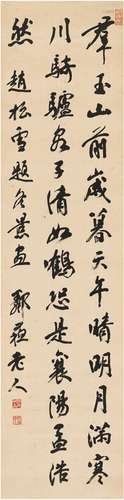 群玉山前歲暮天午晴明月滿寒
川騎驢客子清如鶴恐是襄陽孟浩
然　趙松雪題冬景畫　鄭簠老人